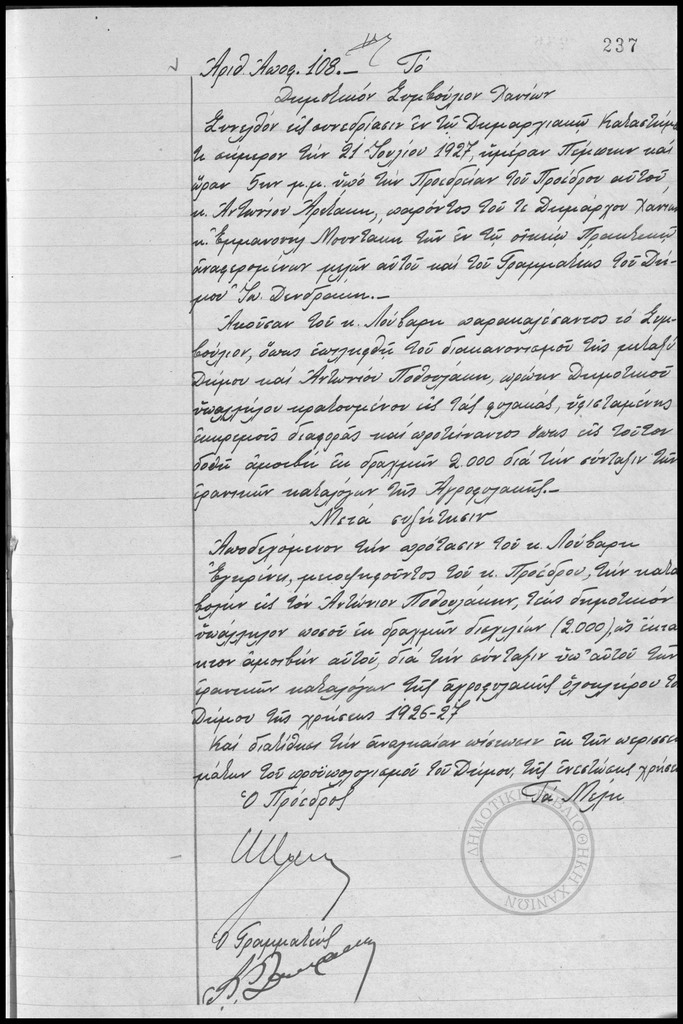 237
Ἀριθ. Ἀποφ. 108.— Τό
Δημοτικόν Συμβούλιον Χανίων
Συνελθόν εἰς συνεδρίασιν ἐν τῷ Δημαρχιακῷ Καταστήμα
τι σήμερον τήν 21 Ἰουλίου 1927, ἡμέραν Πέμπτην καί
ὥραν 5ην μ.μ. ὑπό τήν Προεδρείαν τοῦ Προέδρου αὐτοῦ,
κ. Ἀντωνίου παρόντος τοῦ τε Δημάρχου Χανίων
κ. Ἐμμανουήλ Μουντάκη τῶν ἐν τῷ οἰκείῳ Πρακτικῷ
ἀναφερομένων μελῶν αὐτοῦ καί τοῦ Γραμματέως τοῦ Δή-
μου Ἰω. Δενδράκη.—
Ἀκοῦσαν τοῦ κ. Λούβαρη παρακαλέσαντος τό Συμ-
βούλιον, ὅπως ἐπιληφθῇ τοῦ διακανονισμοῦ τῆς μεταξύ
Δήμου καί Ἀντωνίου πρώην Δημοτικοῦ
ὑπαλλήλου κρατουμένου εἰς τάς φυλακάς, ὑφισταμένης
ἐκκρεμοῦς διαφορᾶς καί προτείναντος ὅπως εἰς τοῦτον
δοθῇ ἀμοιβή ἐκ δραχμῶν 2.000 διά τήν σύνταξιν τῶν
ἐρανικῶν καταλόγων τῆς Ἀγροφυλακῆς.—
Μετά συζήτησιν
Ἀποδεχόμενον τήν πρότασιν τοῦ κ. Λούβαρη
Ἐγκρίνει, μειοψηφοῦντος τοῦ κ. Προέδρου, τήν κατα
βολήν εἰς τόν Ἀντώνιον τέως δημοτικόν
ὑπάλληλον ποσοῦ ἐκ δραχμῶν δισχιλίων (2.000), ὡς ἔκτα
κτον ἀμοιβήν αὐτοῦ, διά τήν σύνταξιν ὑπ' αὐτοῦ τῶν
ἐρανικῶν καταλόγων τῆς ἀγροφυλακῆς ὁλοκλήρου τοῦ
Δήμου τῆς χρήσεως 1926-27
Καί διατίθησι τήν ἀναγκαίαν πίστωσιν ἐκ τῶν περισσευ
μάτων τοῦ προϋπολογισμοῦ τοῦ Δήμου, τῆς ἐνεστώσης χρήσεως
Ὁ Πρόεδρος Τά Μέλη
ΔΗΜΟΤΙΚΗ ΒΙΒΛΙΟΘΗΚΗ ΧΑΝΙΩΝ
Ὁ Γραμματεύς